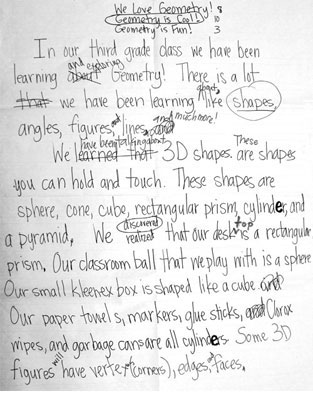 We Love Geometry! 8
Geometry is Cool! 10
Geometry is Fun! 3
In our third grade class we have been
and exploring
learning about Geometry! There is a lot
about
that we have been learning like shapes,
and much more!
angles, figures, lines, and
have been talking about These
We learned that 3D shapes. are shapes
you can hold and touch. These shapes are
sphere, cone, cube, rectangular prism, cylinder, and
discovered top
a pyramid. We realized that our desk is a rectangular
prism. Our classroom ball that we play with is a sphere
Our small kleenex box is shaped like a cube and
Our paper towels, markers, glue sticks, and Clorox
wipes, and garbage cans are all cylinders. Some 3D
figures have vertex (corners), edges, faces.